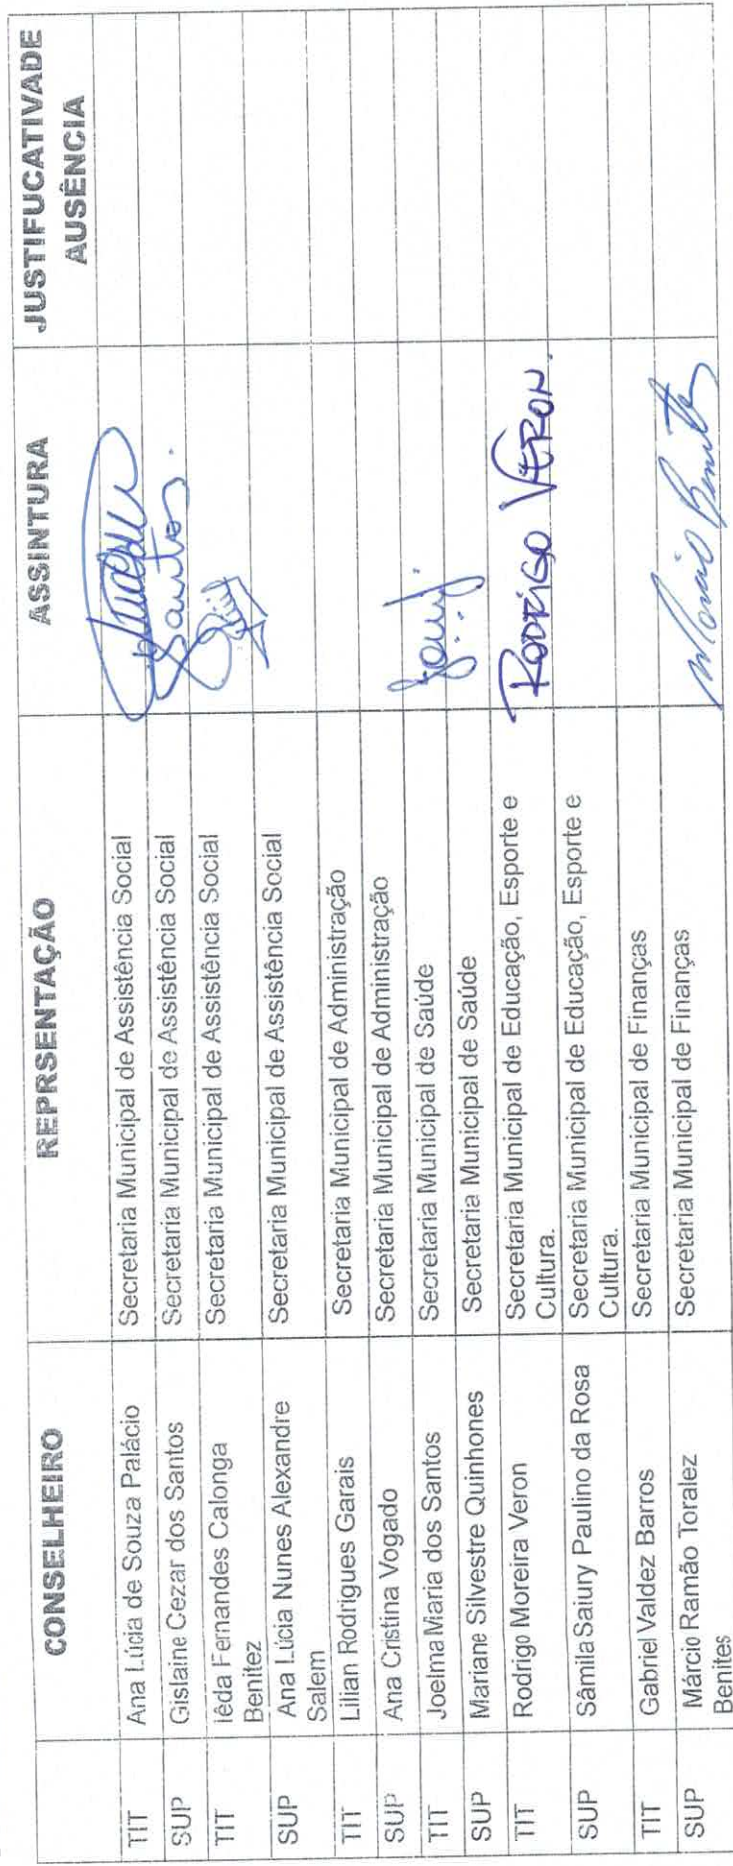 CONSELHEIRO REPRSENTAÇÃO ASSINTURA JUSTIFUCATIVADE
AUSÊNCIA
TIT Ana Lúcia de Souza Palácio Secretaria Municipal de Assistência Social
SUP Gislaine Cezar dos Santos Secretaria Municipal de Assistência Social Santos.
TIT Iêda Fernandes Calonga Secretaria Municipal de Assistência Social
Benitez
SUP Ana Lúcia Nunes Alexandre Secretaria Municipal de Assistência Social
Salem
TIT Lilian Rodrigues Garais Secretaria Municipal de Administração
SUP Ana Cristina Vogado Secretaria Municipal de Administração
TIT Joelma Maria dos Santos Secretaria Municipal de Saúde
SUP Mariane Silvestre Quinhones Secretaria Municipal de Saúde
TIT Rodrigo Moreira Veron Secretaria Municipal de Educação, Esporte e RODRIGO VERON.
Cultura.
SUP SâmilaSaiury Paulino da Rosa Secretaria Municipal de Educação, Esporte e
Cultura.
TIT Gabriel Valdez Barros Secretaria Municipal de Finanças
SUP Márcio Ramão Toralez Secretaria Municipal de Finanças
Benites